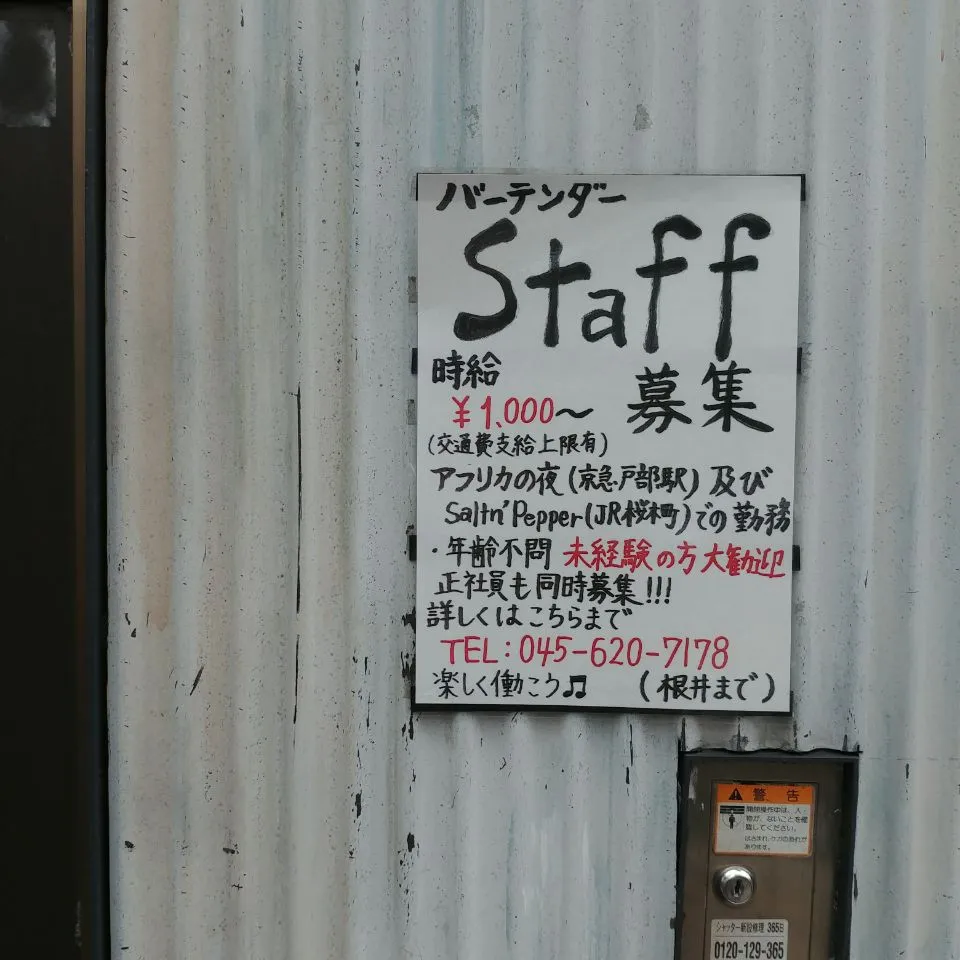 バーテンダー
Staff
募集
時給
¥1,000〜
(交通費支給上限有)
アフリカの夜(京急戸部駅)及び
Saltn'Pepper(JR桜木町)での勤務
・年齢不問 未経験の方大歓迎
正社員も同時募集!!!
詳しくはこちらまで
TEL:045-620-7178
楽しく働こう♫ (根井まで)
警告
開閉操作中は、人・
物が、ないことを確
認してください。
はさまれ、ケガの恐れが
あります。
シャッター新設修理 365日
0120-129-365